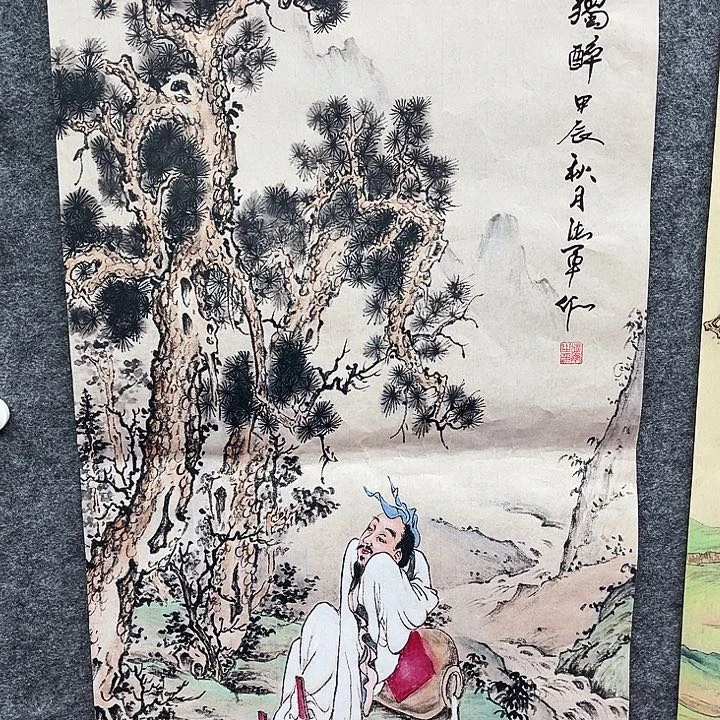 獨醉 甲辰秋月 法軍 作